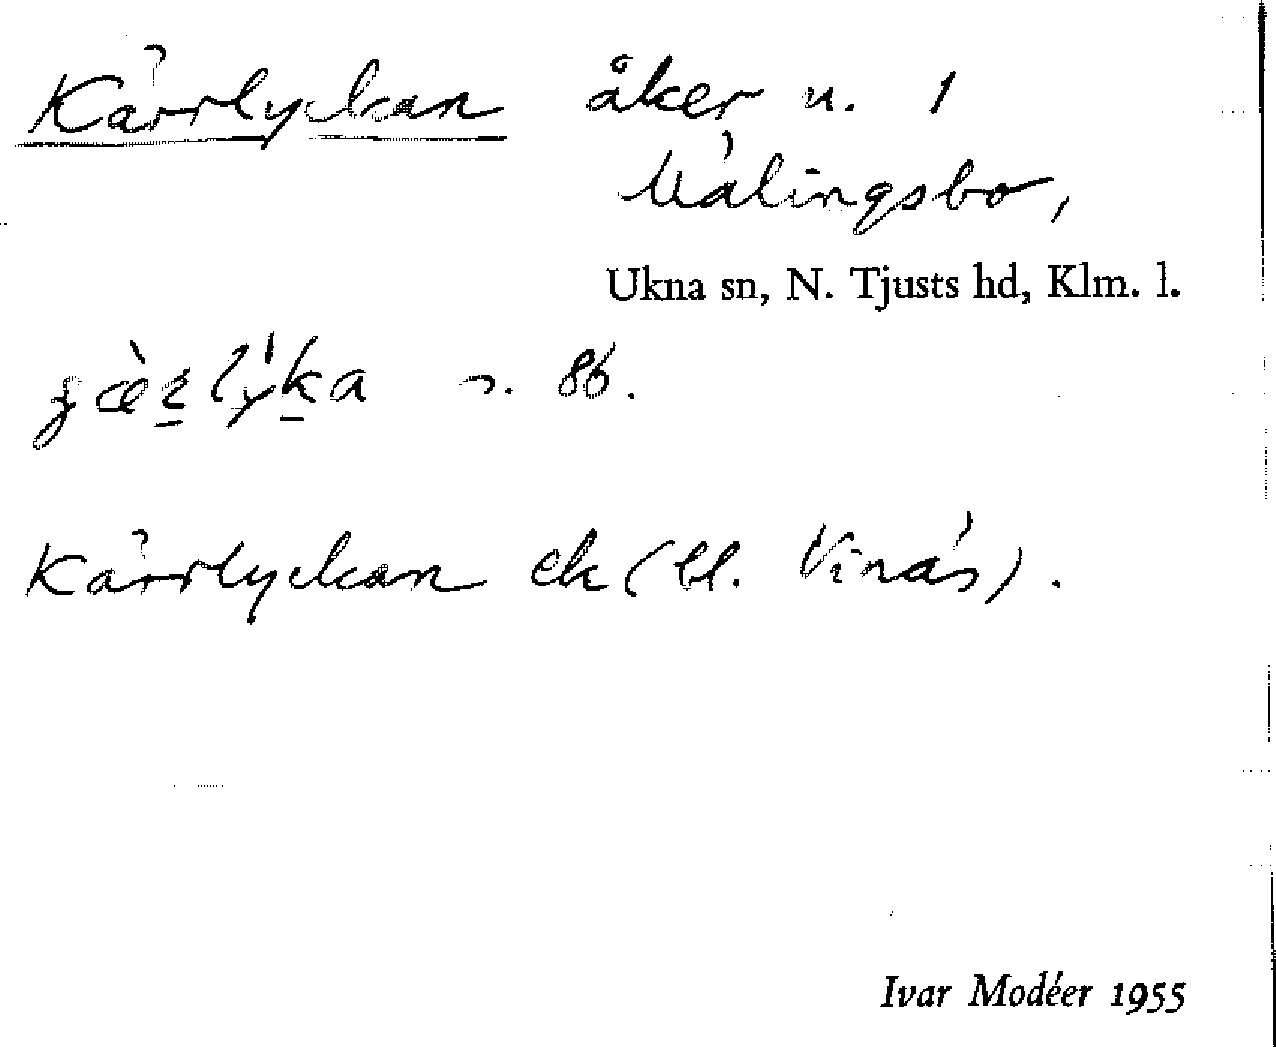 Kärrlyckan åker n. 1
Målingsbo,
Ukna sn, N. Tjusts hd, Klm. l.
86.
Kärrlyckan ek (bl. Vinäs).
Ivar Modéer 1955